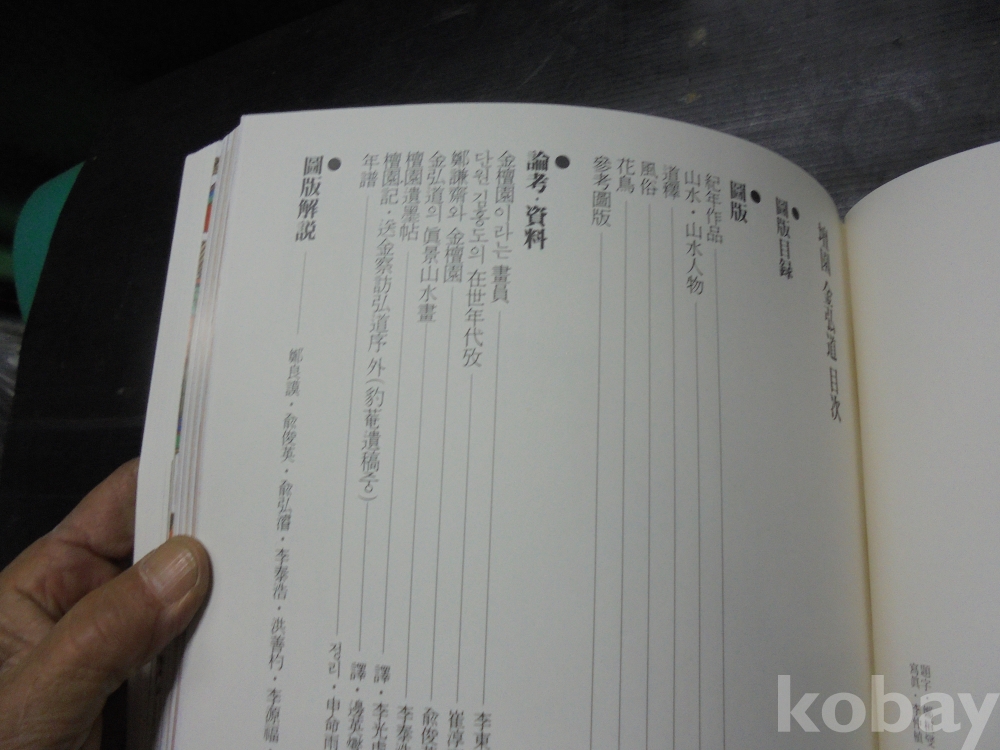 檀園 金弘道 目次
● 圖版目録
● 圖版
紀年作品
山水・山水人物
道釋
風俗
花鳥
參考圖版
● 論考・資料
金檀園이라는 畫員 李東
단원 김홍도의 在世年代攷 崔淳
鄭謙齋와 金檀園 兪俊英
金弘道의 眞景山水畫 李泰浩
檀園遺墨帖 譯・李光虎
檀園記・送金察訪弘道序 外(豹菴遺稿中) 譯・邊英燮
年譜 정리・申命雨
● 圖版解説 鄭良謨・兪俊英・兪弘濬・李泰浩・洪善杓・李源福・
題字
寫眞・
kobay